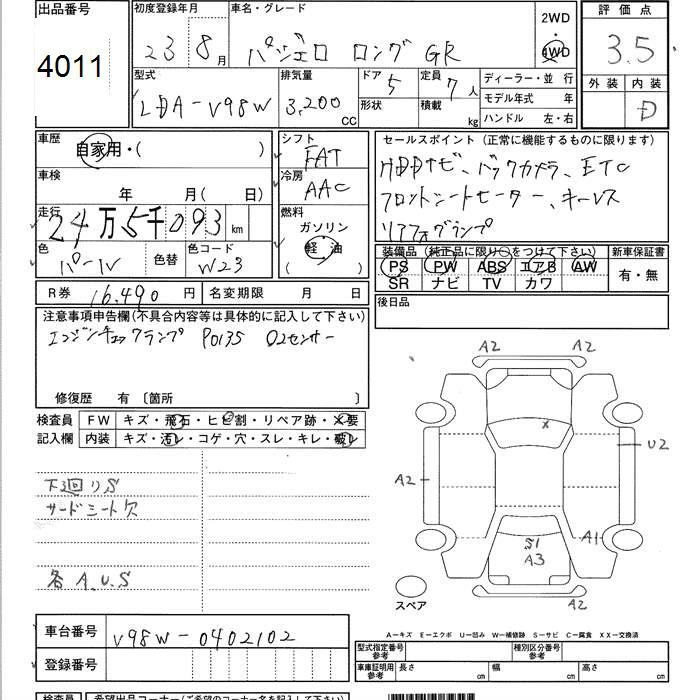 出品番号
4011
初度登録年月
23 8月
車名・グレード
パジェロ ロング GR
2WD
4WD
評価点
3.5
外装 内装
D
型式
LDA-V98W
排気量
3,200 CC
ドア 5
形状
定員 7人
積載 kg
ディーラー・並 行
モデル年式 年
ハンドル 左・右
車歴
自家用・( )
シフト
FAT
車検
年 月( 日)
冷房
AAC
走行
24万5千093 km
燃料
ガソリン
軽 油
( )
色
パール
色替
色コード
W23
R券 16,490 円
名変期限 月 日
セールスポイント(正常に機能するものに限ります)
HDDナビ、バックカメラ、ETC
フロントシートヒーター、キーレス
リアフォグランプ
装備品(純正品に限り○をつけて下さい)
PS PW ABS エアB AW
SR ナビ TV カワ
新車保証書
有・無
後日品
注意事項申告欄(不具合内容等は具体的に記入して下さい)
エンジンチェックランプ P0135 O2センサー
修復歴 有 〔箇所 〕
検査員
記入欄
FW キズ・飛石・ヒビ割・リペア跡・×要
内装 キズ・汚レ・コゲ・穴・スレ・キレ・破レ
下廻りS
サードシート欠
各 A.U.S
A2 A2
X
U2
A2
S1
A3
A1
A2
スペア
車台番号 V98W-0402102
登録番号
A-キズ E-エクボ U-凹み W-補修跡 S-サビ C-腐食 XX-交換済
型式指定番号
参考
種別区分番号
参考
車庫証明用
参考
長さ cm 幅 cm 高さ cm
検査員
希望出品コーナー(ご希望のコーナー名を記入下さい)